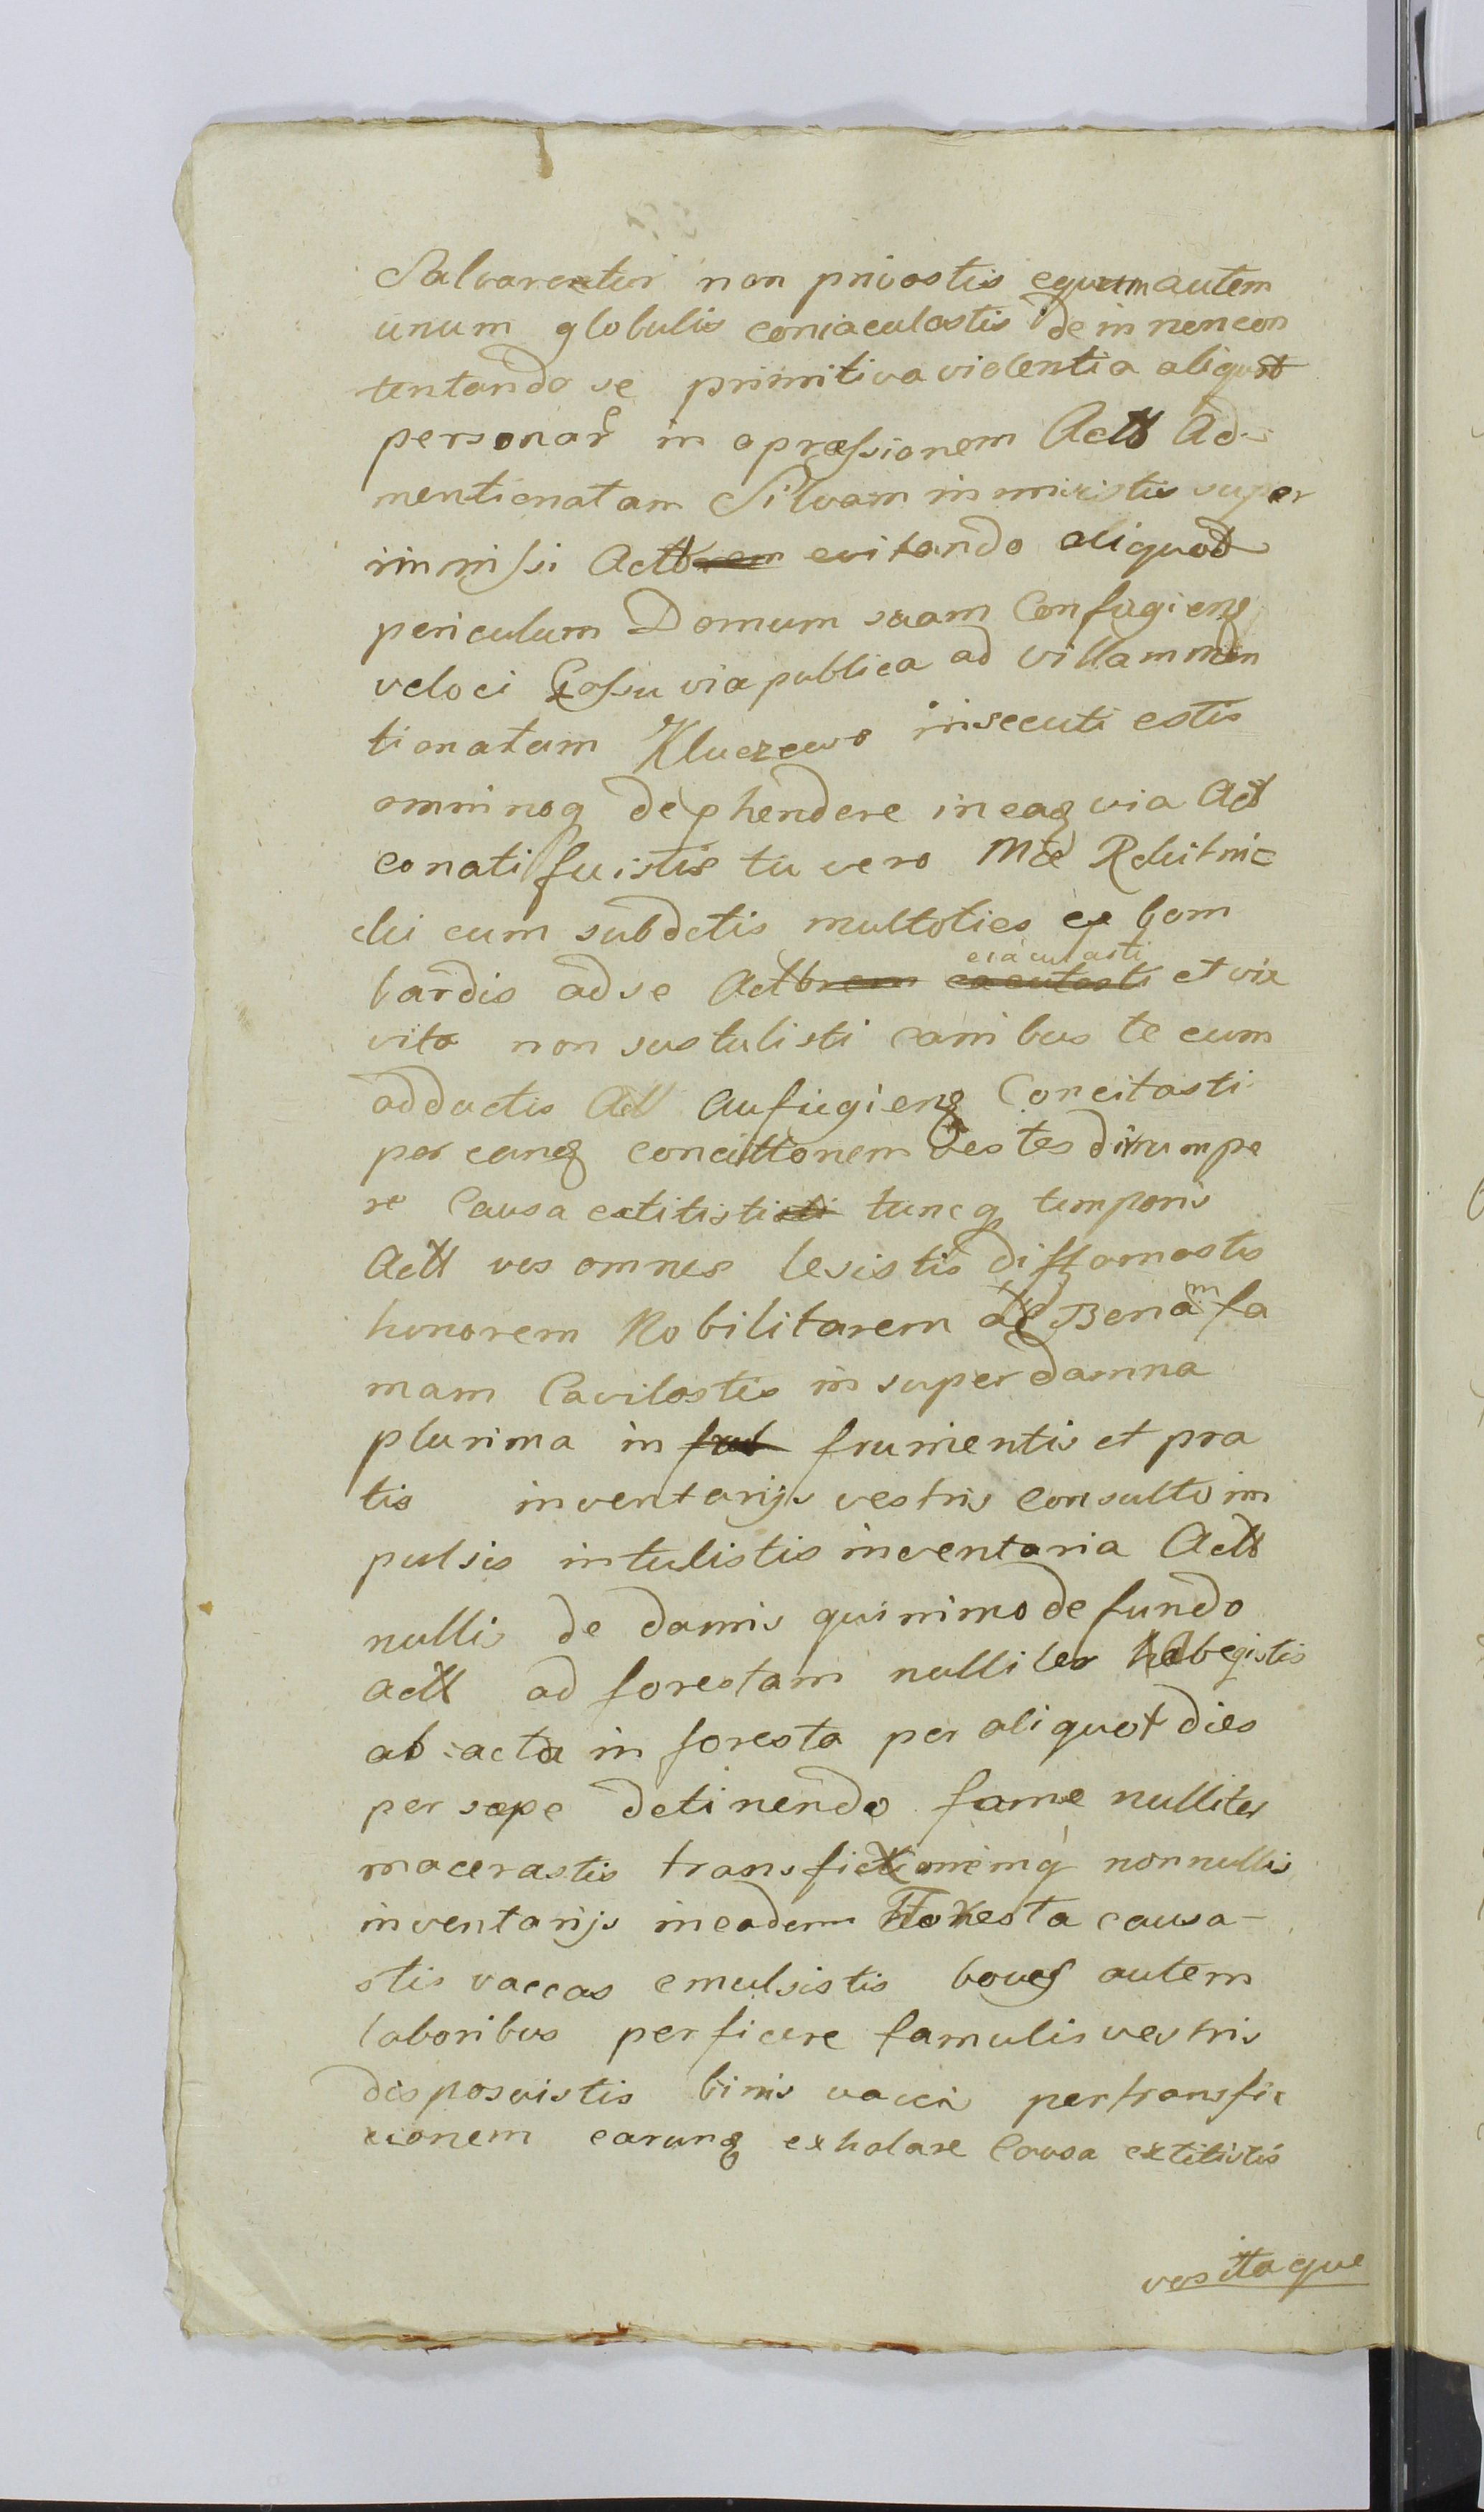 Salvarentur non privastis equum autem
unum globulis coniaculastis dein non con
tentando se primitiva violentia aliquot
personar in opræssionem Actt Ad
mentionatam Silvam immisistis super
immissi Actb rem evitando aliquod
periculum Domum suam Confugienq
veloci Gressu via publica ad villam men
tionatam Kluczewo insecuti estis
omninoq dephendere in eaq via Act
conati fuistis tu vero Mce
cki cum subdctis multoties ex bom
bardis ad se Actb rem eiaculasti et vix
vita non sustulisti canibus tecum
adductis Act aufugienq Concitasti
per eanq concittionem vestes dirumpe
re Causa extitististi tuncq temporis
Actt vos omnes lesistis diffamastis
honorem Nobilitarem Bonam fa
mam Cavilastis insuper damna
plurima in frut frumentis et pra
tis inventarijs vestris consulto im
pulsis intulistis inventaria Actt
nullis de damis quinimo de fundo
actt ad forestam nulliter abegistis
abacta in foresta per aliquot dies
persæpe detinendo fame nulliter
macerastis transfictionemq nonnullis
inventarijs in eadem Foresta causa-
stis vaccas emulsistis boves autem
laboribus perficere famulis vestris
disposuistis binis vacci per transfic
cionem earunq exhalare Causa extitistis
vos itaque